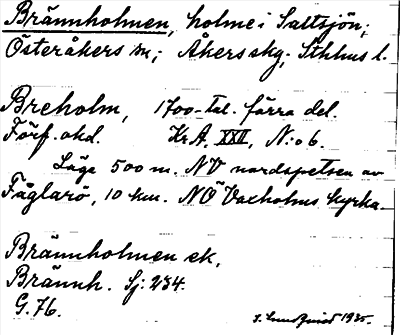 Brännholmen, holme i Saltsjön;
Österåkers sn; Åkers sky; Sthlms l.
Breholm, 1700-tal. förra del.
Förf. okd. Kr.A. XXII, N:o 6.
Läge 500 m. NV nordspetsen av
Fäglarö, 10 km. NÖ Vaxholms kyrka.
Brännholmen ek,
Brännh. Sj: 284.
G. 76.
S. Lundquist 1935.